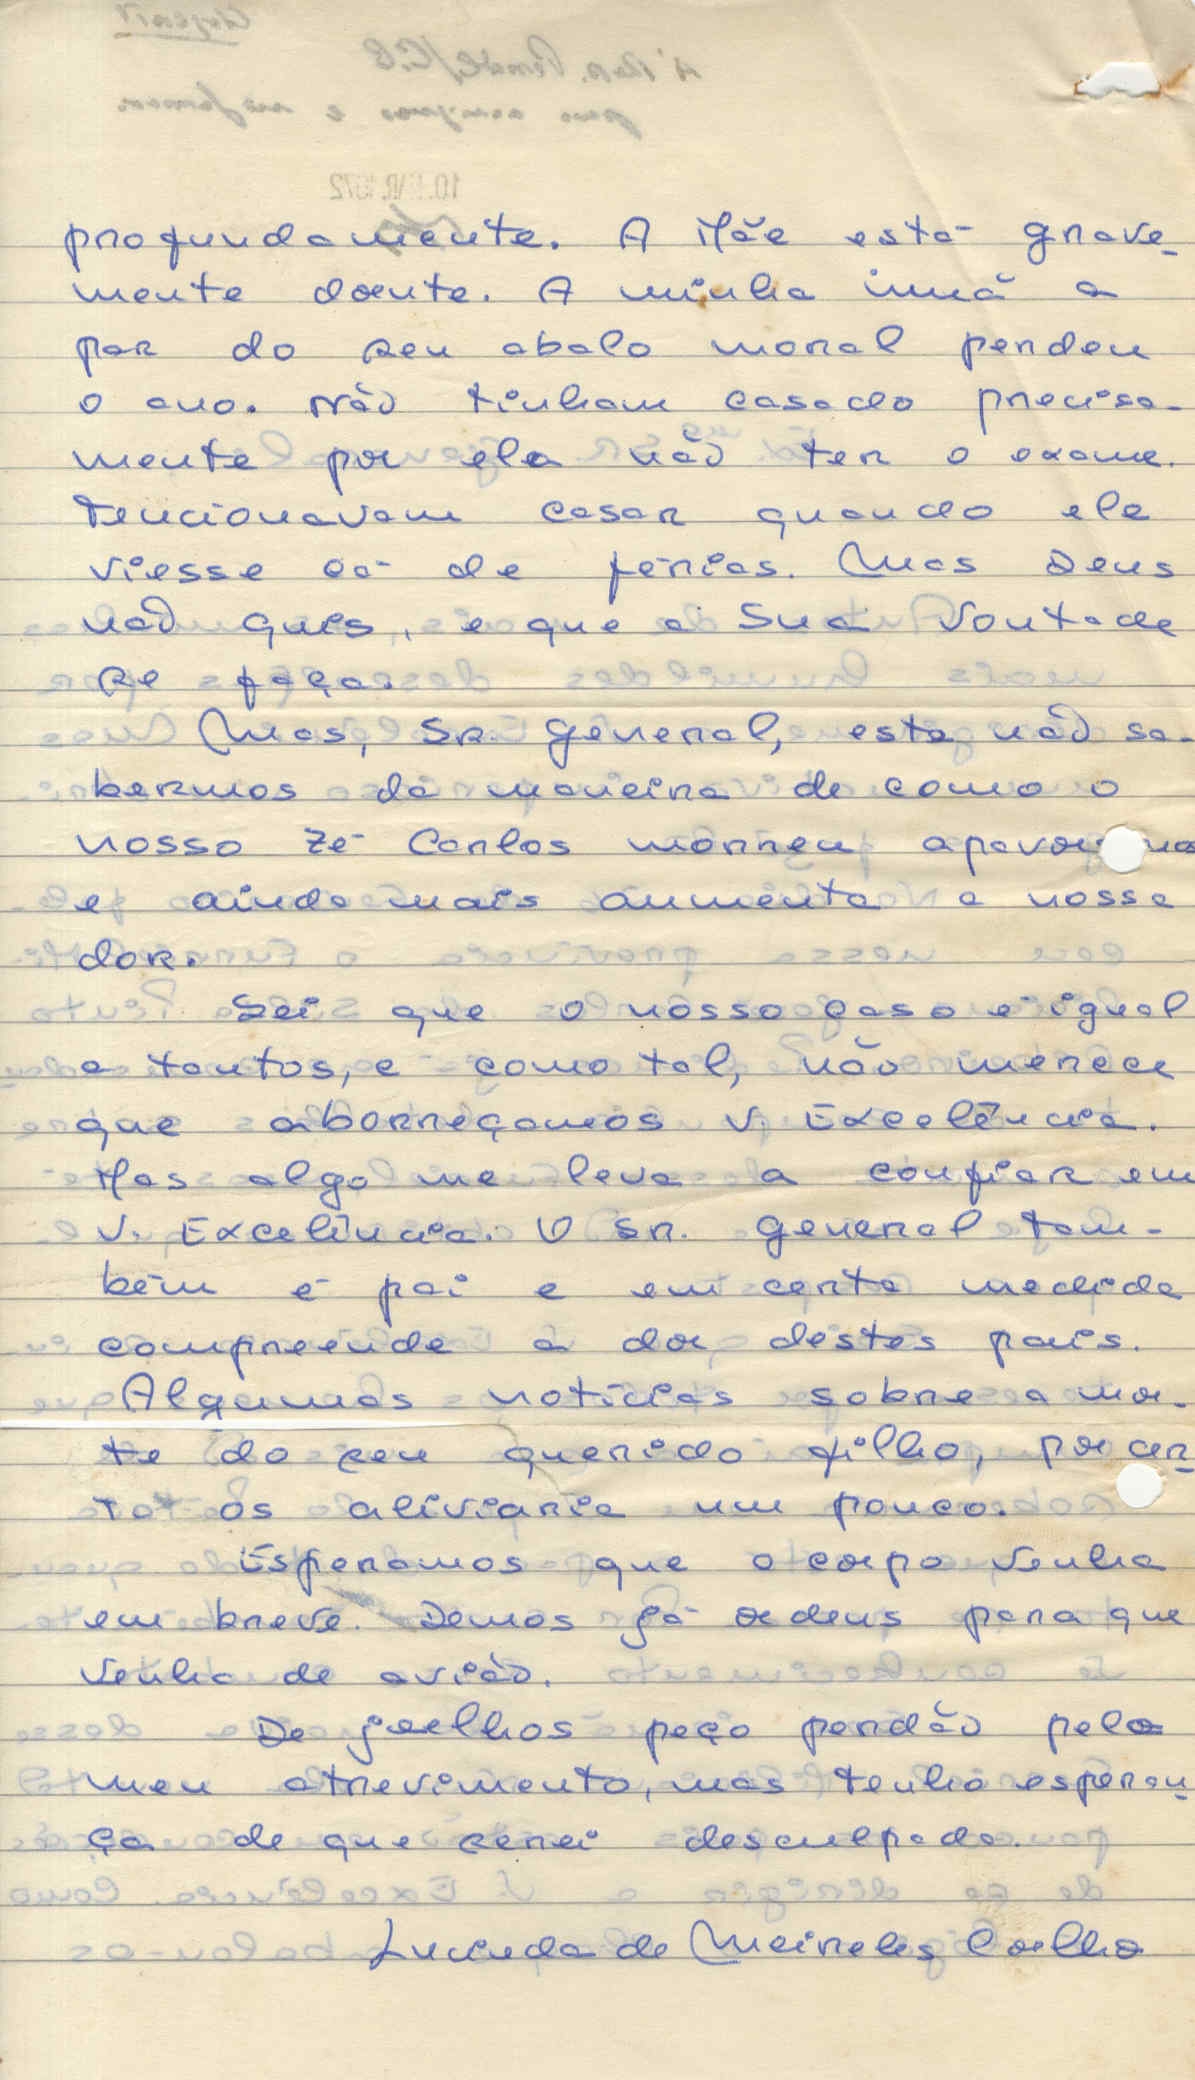 profundamente. A Mãe está grave-
mente doente. A minha irmã a
par do seu abalo moral perdeu
o ano. Não tinham casado precisa-
mente por ela não ter o exame.
Tencionavam casar quando ele
viesse cá de férias. Mas Deus
não quis, e que a Sua Vontade
se faça.
Mas, Sr. General, esta não sa-
bermos da maneira de como o
nosso Zé Carlos morreu apavora-nos
e ainda mais aumenta a nossa
dor.
Sei que o nosso caso é igual
a tantos, e como tal, não merece
que aborreçamos V. Excelência.
Mas algo me leva a confiar em
V. Excelência. O Sr. General tam-
bém é pai e em certa medida
compreende a dor dêstes pais.
Algumas notícias sobre a mor-
te do seu querido filho, por cer-
to os aliviaria um pouco.
Esperamos que o corpo venha
em breve. Demos já ordens para que
venha de avião.
De joelhos peço perdão pelo
meu atrevimento, mas tenho esperan-
ça de que serei desculpada.
Lucinda de Meireles Coelho